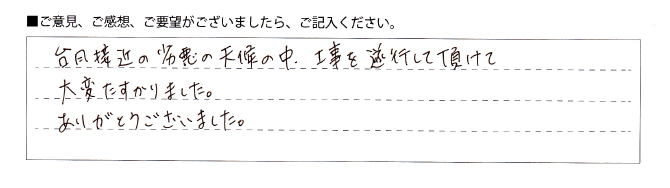 ■ご意見、ご感想、ご要望がございましたら、ご記入ください。
台風接近の劣悪の天候の中、工事を遂行して頂けて
大変たすかりました。
ありがとうございました。